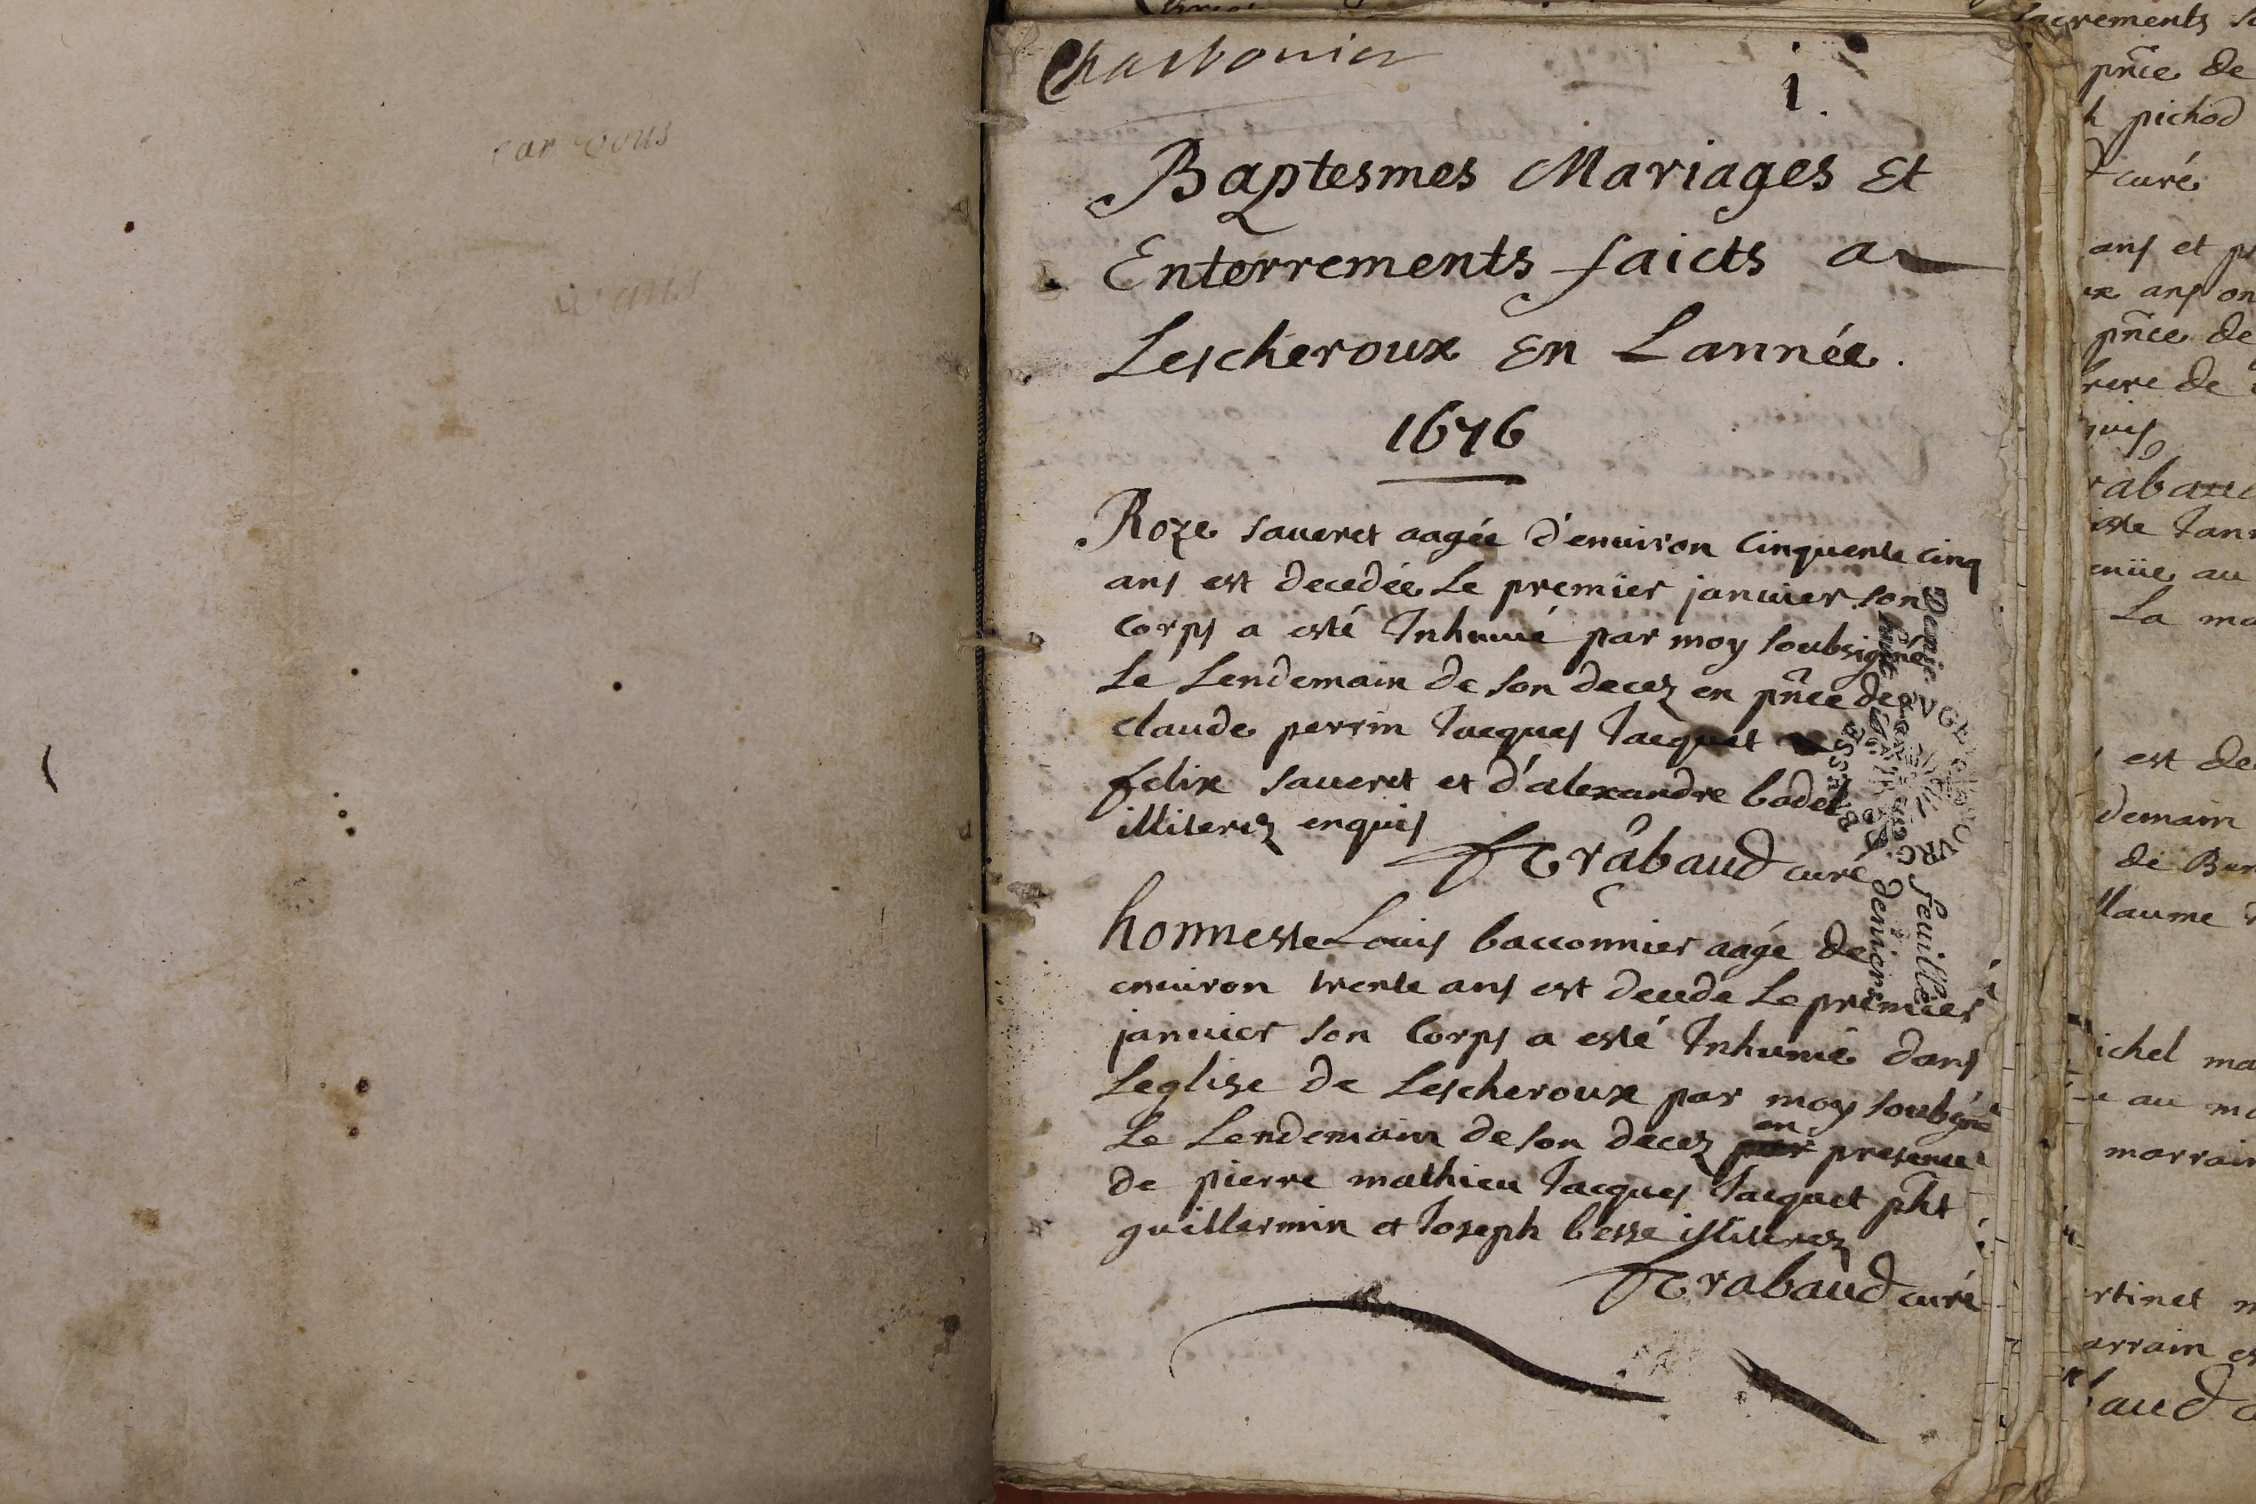 car vous
Charbonier
1.
Baptesmes Mariages Et
Enterrements faicts a
Lescheroux En Lannée.
1676
Roze saueret aagée d'enuiron Cinquente cinq
ans est decedée Le premier januier son
Corps a esté Inhumé par moy soubsigné
Le Lendemain de son decez en pnce de
claude perrin Jacques Jacquet
felix saueret et d'alexandre bodet
illiterez enquis
Trabaud curé
honneste Louis bacconnier aagé de
enuiron trente ans est decede Le premier
januier son Corps a esté Inhumé dans
Leglise de Lescheroux par moy soubsné
Le Lendemain de son decez en presence
de pierre mathieu Jacques Jacquet pht
guillermin et Joseph besse illiterez
Trabaud curé
BRESSE
feuille
huit deniers
sacrements
pnce de
pichod
curé
ans et
ans on
pnce de
de
La
est de
demain
de
marrain